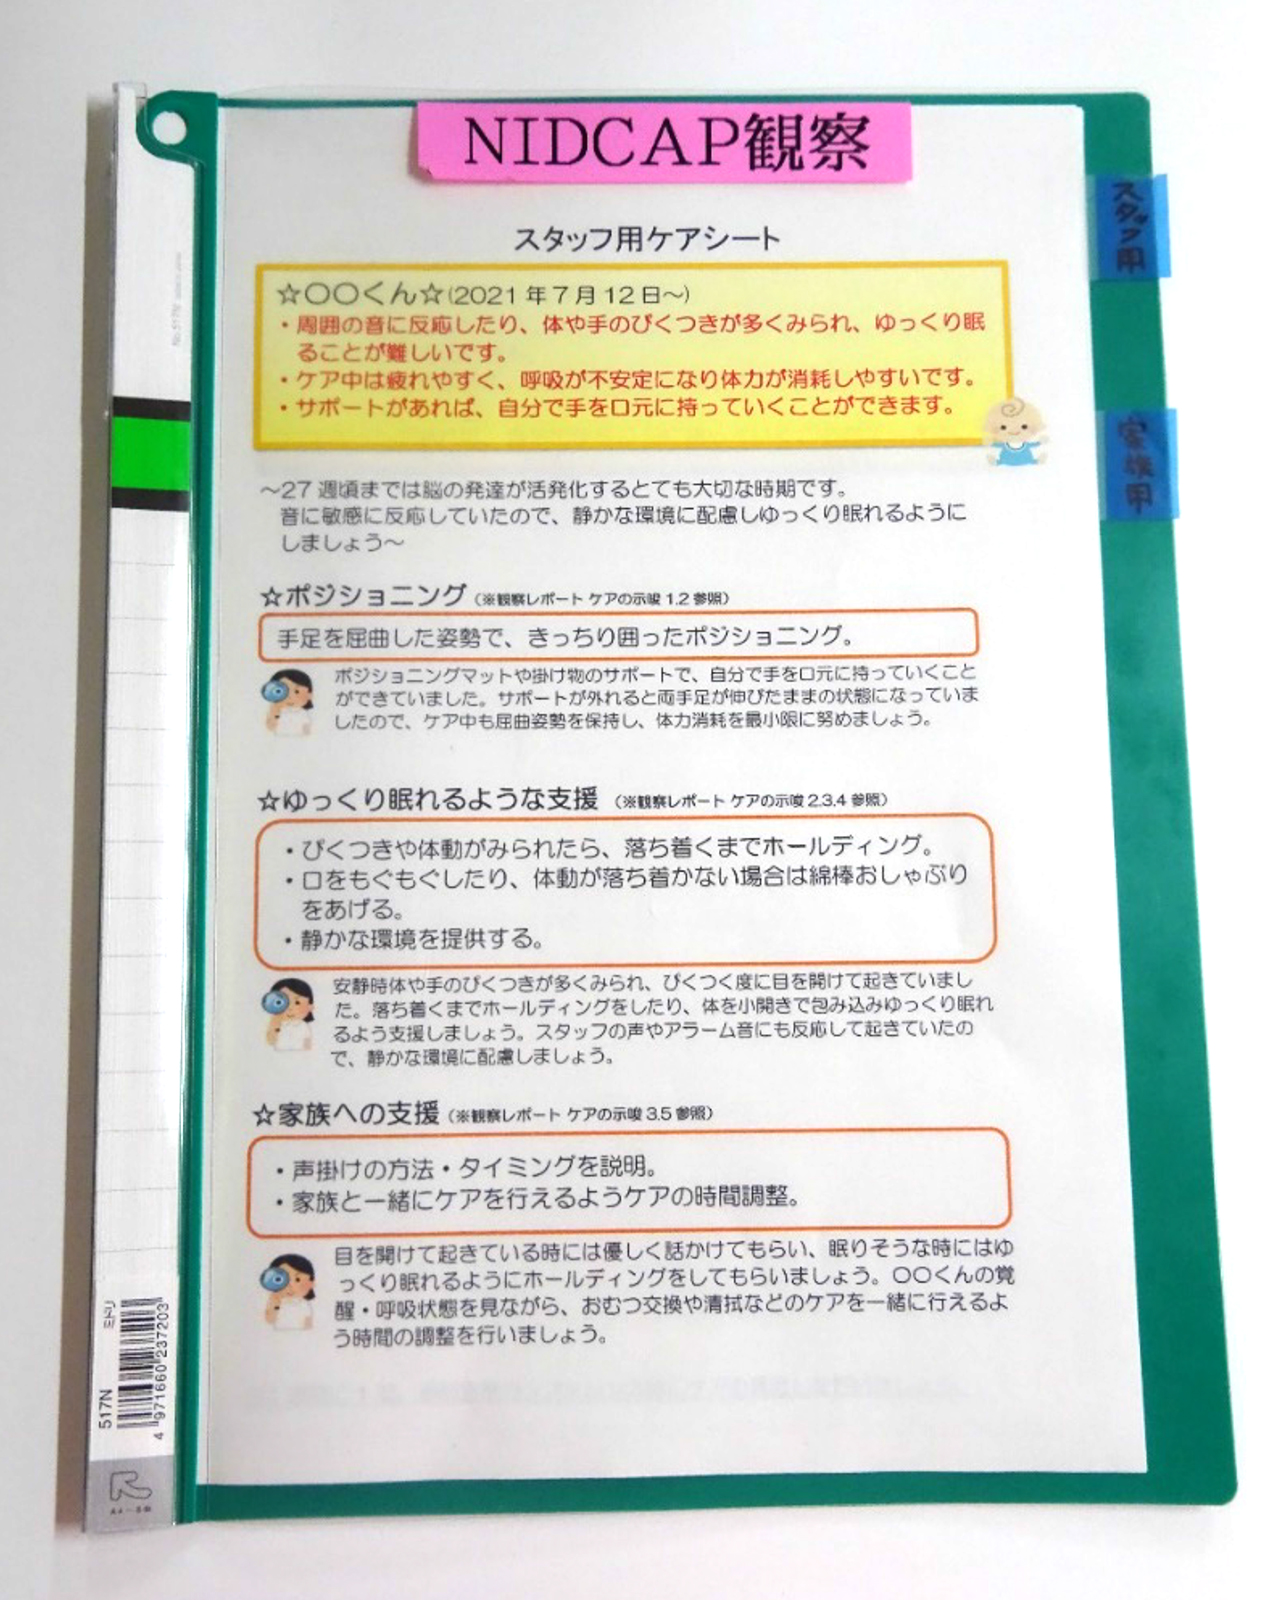 NIDCAP観察
スタッフ用
家族用
スタッフ用ケアシート
☆〇〇くん☆(2021年7月12日～)
・周囲の音に反応したり、体や手のびくつきが多くみられ、ゆっくり眠
ることが難しいです。
・ケア中は疲れやすく、呼吸が不安定になり体力が消耗しやすいです。
・サポートがあれば、自分で手を口元に持っていくことができます。
～27週頃までは脳の発達が活発化するとても大切な時期です。
音に敏感に反応していたので、静かな環境に配慮しゆっくり眠れるように
しましょう～
☆ポジショニング（※観察レポート ケアの示唆 1.2 参照）
手足を屈曲した姿勢で、きっちり囲ったポジショニング。
ポジショニングマットや掛け物のサポートで、自分で手を口元に持っていくこと
ができていました。サポートが外れると両手足が伸びたままの状態になっていま
したので、ケア中も屈曲姿勢を保持し、体力消耗を最小限に努めましょう。
☆ゆっくり眠れるような支援（※観察レポート ケアの示唆 2.3.4 参照）
・びくつきや体動がみられたら、落ち着くまでホールディング。
・口をもぐもぐしたり、体動が落ち着かない場合は綿棒おしゃぶり
をあげる。
・静かな環境を提供する。
安静時体や手のびくつきが多くみられ、びくつく度に目を開けて起きていまし
た。落ち着くまでホールディングをしたり、体を小開きで包み込みゆっくり眠れ
るよう支援しましょう。スタッフの声やアラーム音にも反応して起きていたの
で、静かな環境に配慮しましょう。
☆家族への支援（※観察レポート ケアの示唆 3.5 参照）
・声掛けの方法・タイミングを説明。
・家族と一緒にケアを行えるようケアの時間調整。
目を開けて起きている時には優しく話かけてもらい、眠りそうな時にはゆ
っくり眠れるようにホールディングをしてもらいましょう。〇〇くんの覚
醒・呼吸状態を見ながら、おむつ交換や清拭などのケアを一緒に行えるよ
う時間の調整を行いましょう。
517N
4 971660 237203